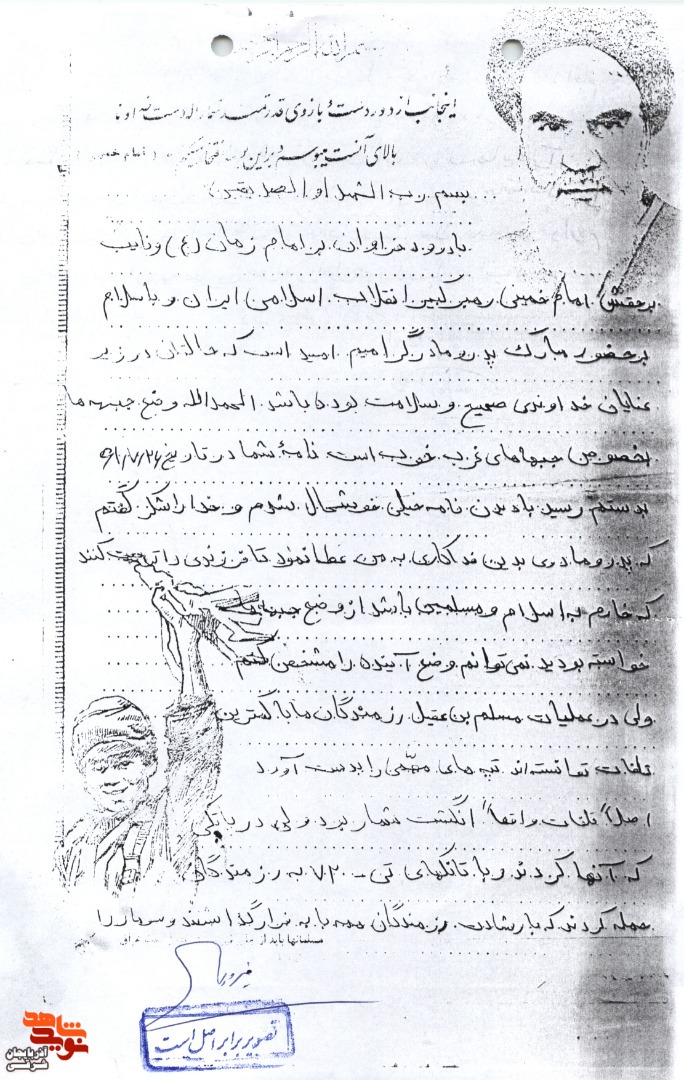 بسم الله الرحمن الرحیم
اینجانب از دور دست و بازوی قدرتمند شما را که دست خداوند
بالای آنست میبوسم و بر این بوسه افتخار میکنم «امام خمینی»
بسم رب الشهداء و الصدیقین
با درود فراوان بر امام زمان (عج) و نایب
برحقش امام خمینی رهبر کبیر انقلاب اسلامی ایران و با سلام
بر حضور مبارک پدر و مادر گرامیم امید است که حالتان در زیر
عنایات خداوندی صحیح و سلامت بوده باشد الحمدالله وضع جبهه ها
بخصوص جبهه‌های غرب خوب است نامهٔ شما در تاریخ
بدستم رسید با دیدن نامه خیلی خوشحال شدم و خدا را شکر گفتم
که پدر و مادری بدین فداکاری به من عطا نمود تا فرزندی را تربیت کنند
که خادم به اسلام و مسلمین باشد از وضع جبهه ها
خواسته بودید نمی‌توانم وضع آینده را مشخص کنم
ولی در عملیات مسلم بن عقیل رزمندگان ما با کمترین
تلفات توانسته‌اند تپه های مهمی را بدست آورد
اصلاً تلفات واقعاً انگشت شمار بود ولی در پاتکی
که آنها کردند و با تانکهای تی - ۷۲۰ به رزمندگان
حمله کردند که با رشادت رزمندگان همه پا به فرار گذاشتند و سومار را
مسلمانها باید از
تصویر برابر اصل است
نوید شاهد
آذربایجان شرقی